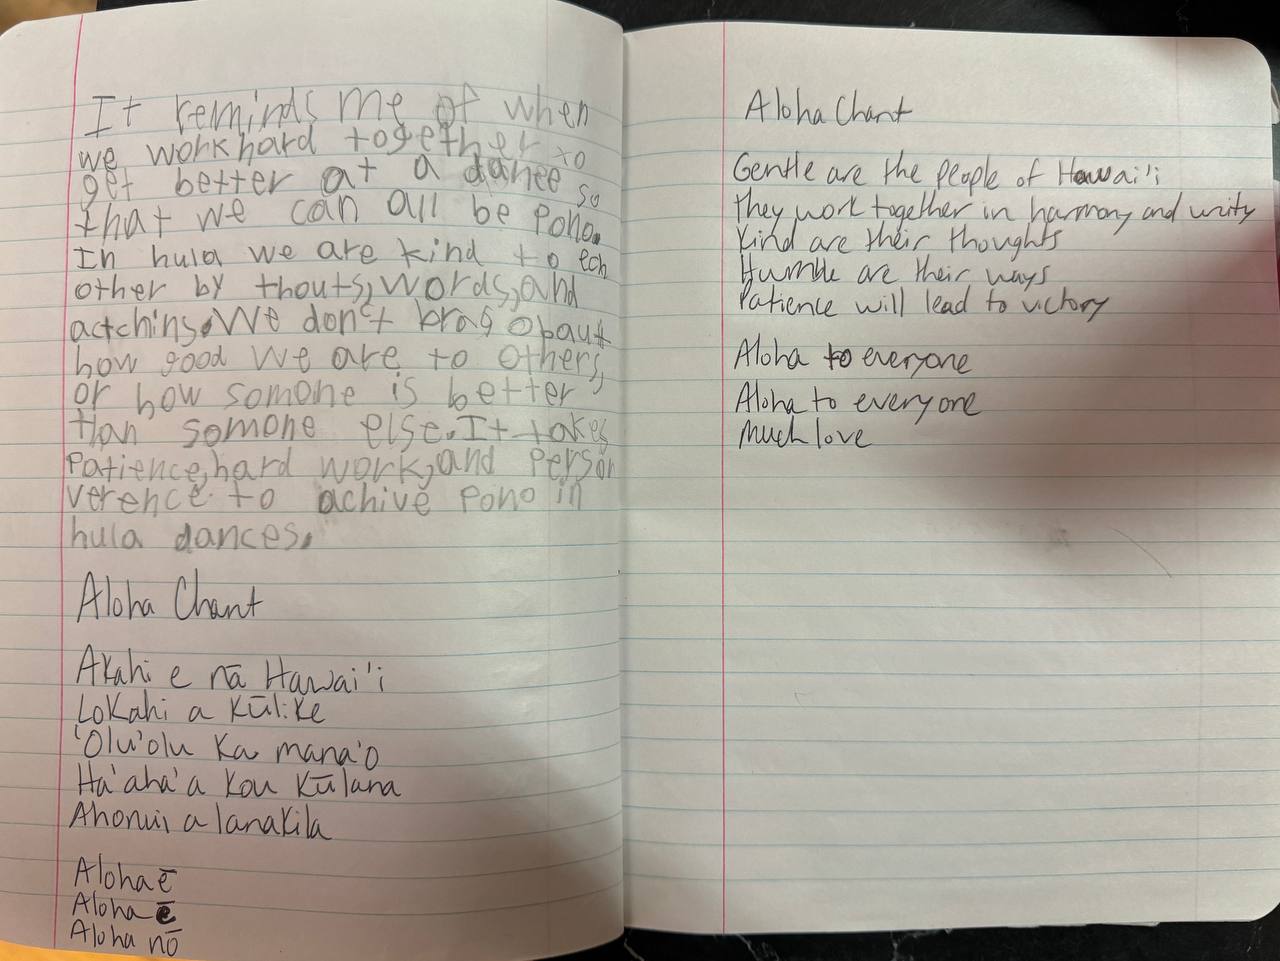 It reminds me of when
we work hard together to
get better at a dance so
that we can all be pono.
In hula we are kind to ech
other by thouts, words, and
actchins. We don't brag obaut
how good we are to others,
or how somone is better
than somone else. It takes
patience, hard work, and person
verence to achive pono in
hula dances.
Aloha Chant
Akahi e nā Hawai'i
Lokahi a Kūlike
'Olu'olu Ka mana'o
Ha'aha'a Kou Kūlana
Ahonui a lanakila
Aloha ē
Aloha ē
Aloha nō
Aloha Chant
Gentle are the people of Hawai'i
They work together in harmony and unity
Kind are their thoughts
Humble are their ways
Patience will lead to victory
Aloha to everyone
Aloha to everyone
Much love